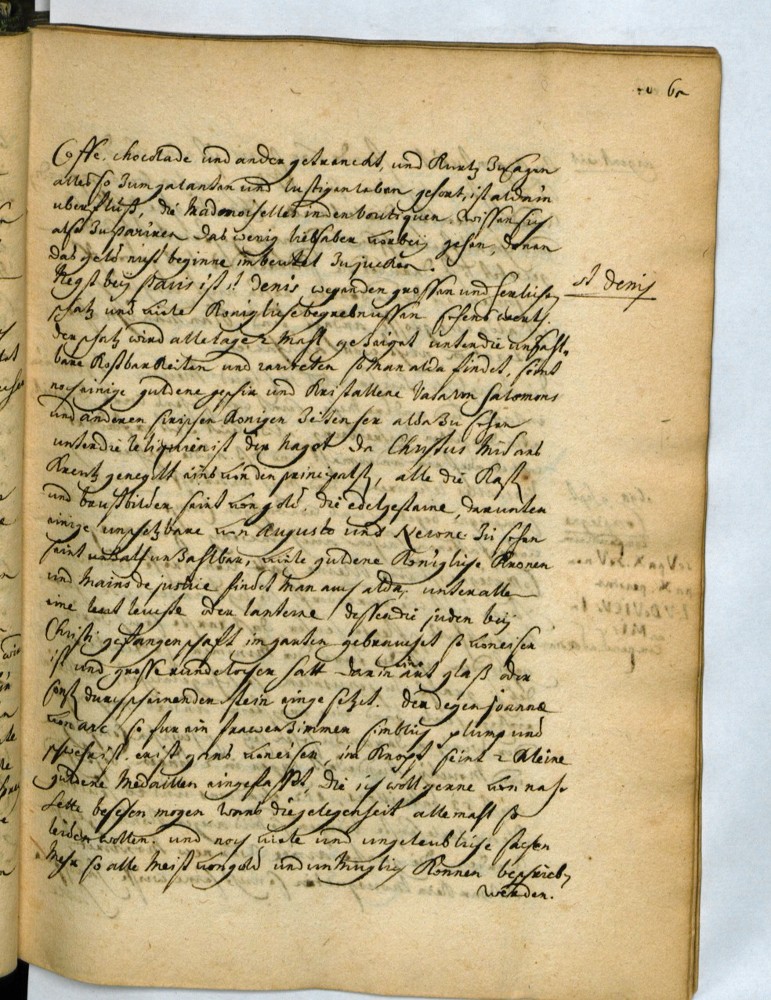 65
Coffe, chocolade und ander getranckt, und Kurtz zusagen
alles so zum galanten und lustigen leben gehort, ist alda in
uberfluß, die Mademoiselles in den boutiquen wissen sich
alß zu
das wenig liebhaber vorbeij gehen, denen
das geld nicht beginne im beutel zu jucken.
Negst beij Paris ist S! Denis wegen den grossen und herlichen
St Denis
schatz und viele Konigliche begrebnussen sehens werth.
der schatz wird alle tage 2 Mahl gezeiget unter die unschätz-
bare Kostbarkeiten und rariteten so man alda findet, seint
noch einige guldene geschir und Kristallene Vasa von Salomons
und anderen Konigen zeiten her alda zu sehen
unter die reliquien ist der Nagel da Christus mit ans
Kreutz genegelt eins von den principalst, alle die Kast
und brustbilder seint von gold, die edelgesteine, darunter
einige unschetzbare von Augusto und Nerone zu sehen
seint unzahlbar, viele guldene Königliche Kronen
und Mains de justice findet man auch alda, unter allen
eine leuchte oder lanterne dessen die juden beij
Christi gefangenschaft im garten gebrauchet so von eisen
ist und grosse runde locher hatt darin ein art glaß oder
sonst durchscheinenden stein eingesetzet. der degen joannæ
von arc, so fur ein frawen zimmer zimblich plump und
schwehr ist, er ist gantz von eisen, im Knopf seint 2 Kleine
guldene Medaillen eingefasset, die ich woll gerne von nahe
hette besehen mogen wans die gelegenheit allemahl so
leiden wollen. und noch viele und ungleubliche sachen
mehr so alle meist von gold und unmuglich Konnen beschrieb.
werden.